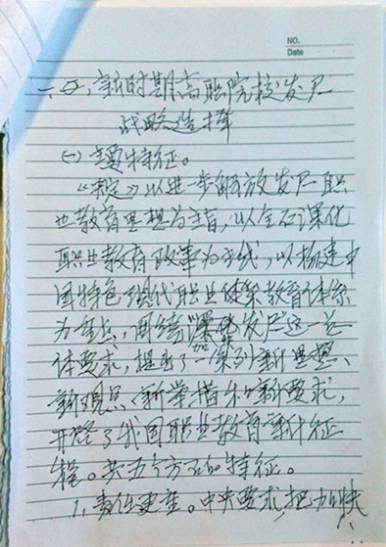 NO.
Date
一、新时期高职院校发展
战略选择
(一)主要特征。
《决定》以进一步解放发展职
业教育思想为主旨,以全面深化
职业教育改革为主线,以构建中
国特色现代职业教育体系
为重点,围绕加快发展这一总
体要求,提出了一系列新思想、
新观点、新举措和新要求,
开启了我国职业教育新征
程。共五个方面的特征。
1、责任更重。中央要求,把加快